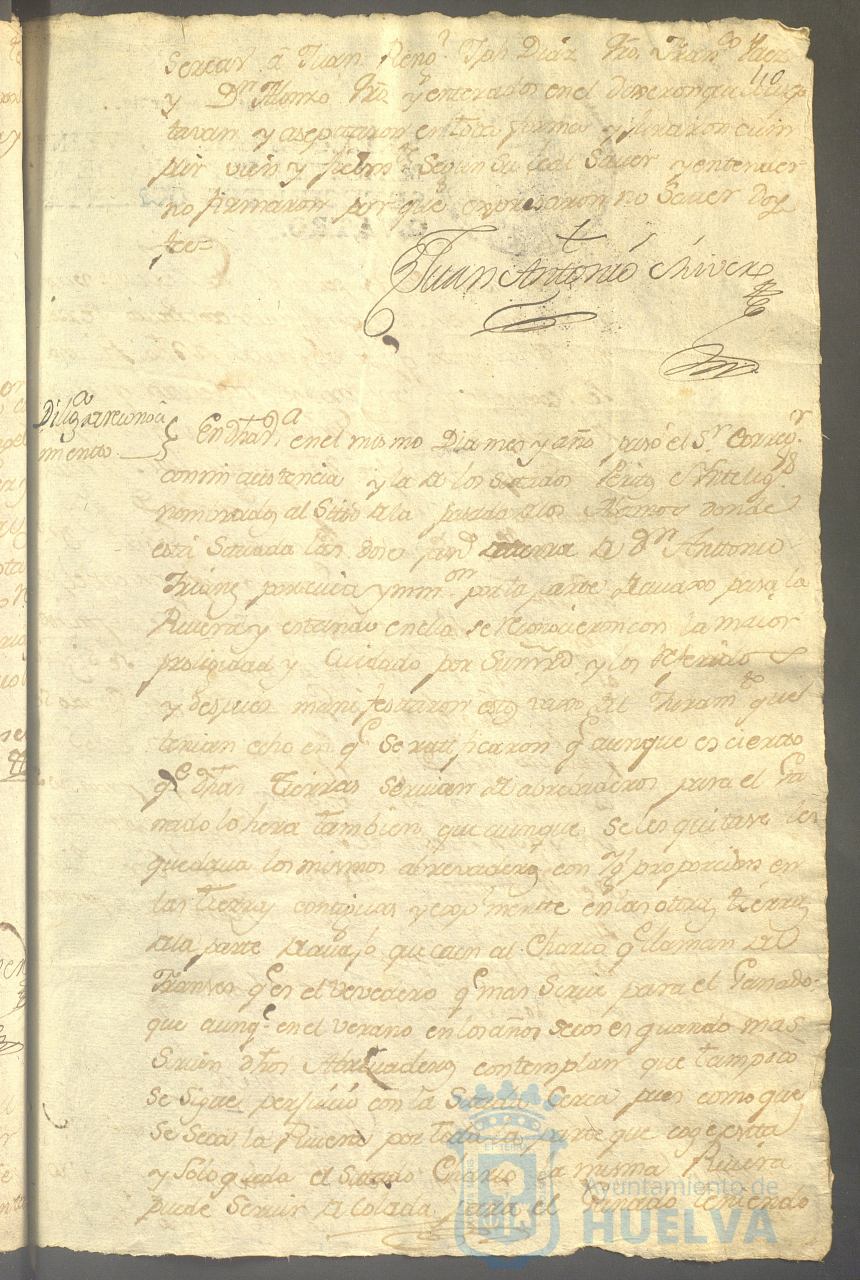 sercar â Juan Reno.r Jph Diaz Hro. Fran.co
110
y D.n Alonso Hro y enterados en el dixeron que
tavan y aseptaron en toda forma y juraron cum
plir vien y fielm.te Segun su leal Saver y entender
no firmaron porque expresaron no Saver Doy
fee=
Juan Antonio
Dilig.a de reconoci
miento
En dha V.a en el mismo Dia mes y año pasó el S.r Correg.or
con mi asistencia y la de los sitados Peritos
nomvrados al Sitio de la posada de los Alamos donde
está Situada las dose de tierra de D.n Antonio
por la parte de avaxo para la
Rivera y estando en ella se reconocieron con la maior
prolixidad y Cuidado por Su mrd y los referidos
y despues manifestaron estos vaxo del Juram.to que
tenian echo en q.e se ratificaron q.e aunque es cierto
q.e dhas tierras servian de abrebaderos para el Ga
nado lo hera tambien que aunque se les quitase les
quedava los mismos abrevaderos con proporcion en
las tierras contiguas y en las otras tierras
de la parte de avajo que caen al Charco q.e llaman de
q.e es el vevedero q.e mas Sirve para el Ganado:
que aunq.e en el verano en los años secos es quando mas
Sirven dhos Abrevaderos contemplan que tampoco
se sigue perjuicio con la Sitada Cerca pues como que
se seca la Rivera por toda la parte que coje esta
y Solo queda el Sitado Charco la misma Rivera
puede Servir de Colada para el Ganado teniendo
Ayuntamiento de
HUELVA